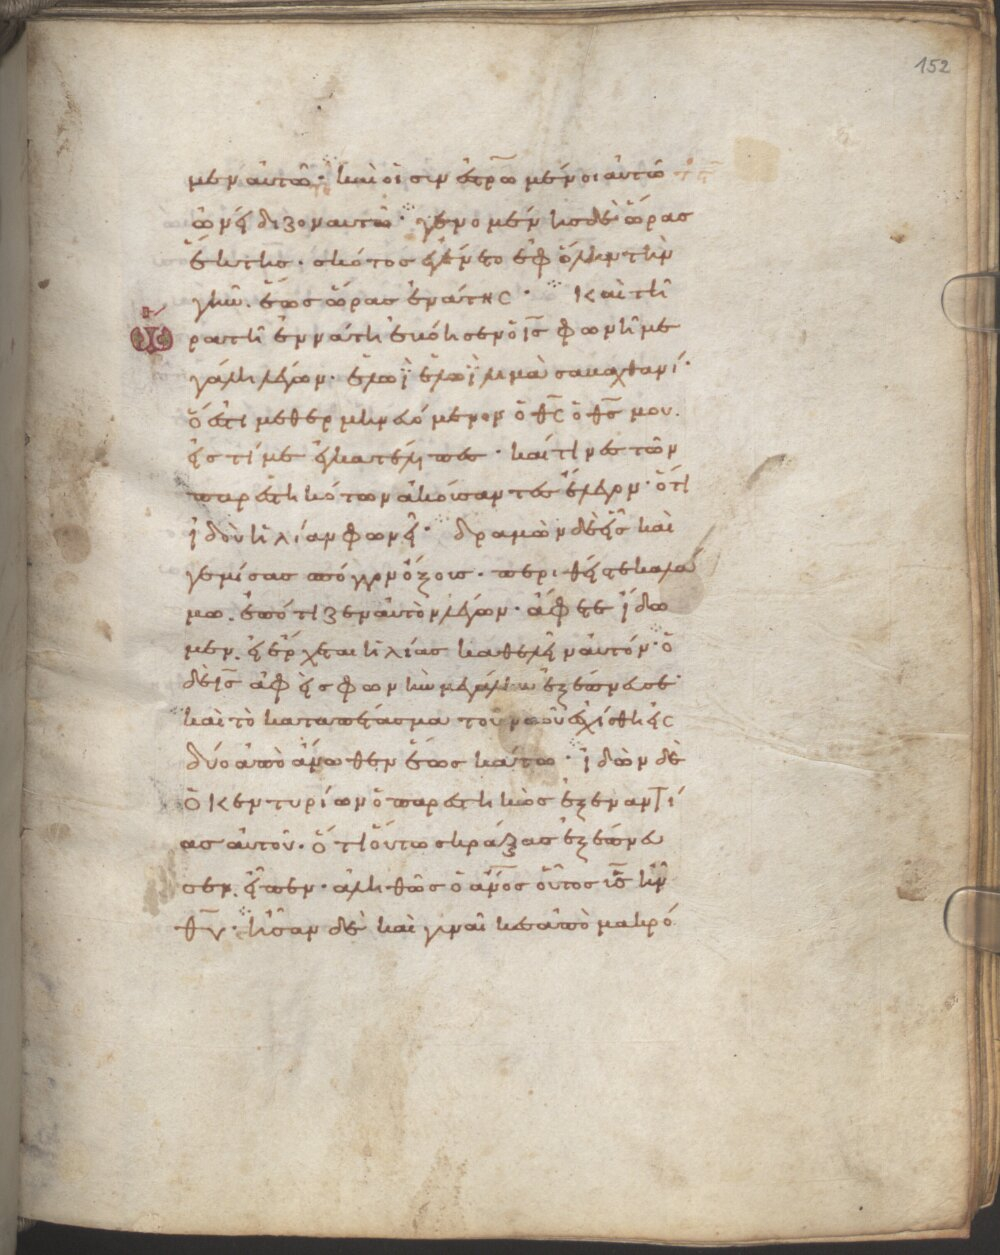 152
μεν αὐτῶ· καὶ οἱ συν ἐσ̅ρ̅ωμένοι αὐτῶ
ὠνείδιζον αυτὸν· γενομένησ δὲ ὥρασ
ἕκτησ· σκότοσ ἐγένετο ἐφ ὅλην τὴν
γῆν. ἕωσ ὥρασ ἐνάτης· Καὶ τῆ
ὥρα τῆ ἐννάτη ἐβόησεν ὁ ι̅σ̅ φωνῆ με
γάλη λέγων· ἐλωῒ ἐλωῒ λιμὰ σαβαχθανί·
ὅ ἐστι μεθερμηνευόμενον ὁ θ̅ς̅ ὁ θ̅ς̅ μου.
εἰσ τί με ἐγκατέλιπεσ· καί τινεσ τῶν
παρεστηκότων ἀκούσαντεσ ἔλεγον· ὅτι
ἰδοὺ ἠλίαν φωνεῖ· δραμὼν δὲ εἷσ καὶ
γεμίσασ σπόγγον ὄξουσ· περιθείσ τε καλά
μω. ἐπότιζεν αὐτὸν λέγων· ἄφετε ἴδω
μεν. εἰ ἔρχεται ἠλίασ καθελεῖν αὐτόν· ὁ
δὲ ι̅σ̅ ἀφεὶσ φωνὴν μεγάλην ἐξέπνευσε·
καὶ τὸ καταπέτασμα τοῦ ναοῦ ἐσχίσθη εἰς
δύο ἀπὸ ἄνωθεν ἕωσ κάτω· ἰδὼν δὲ
ὁ Κεντυρίων ὁ παρεστηκὼσ ἐξ ἐναντί
ασ αὐτοῦ· ὅτι οὕτω κράξασ ἐξέπνευ
σεν. εἶπεν· ἀληθῶσ ὁ α̅ν̅οσ οὗτοσ υ̅ς̅ ἦν
θ̅υ̅· ἦσαν δὲ καὶ γυναῖκεσ ἀπὸ μακρό